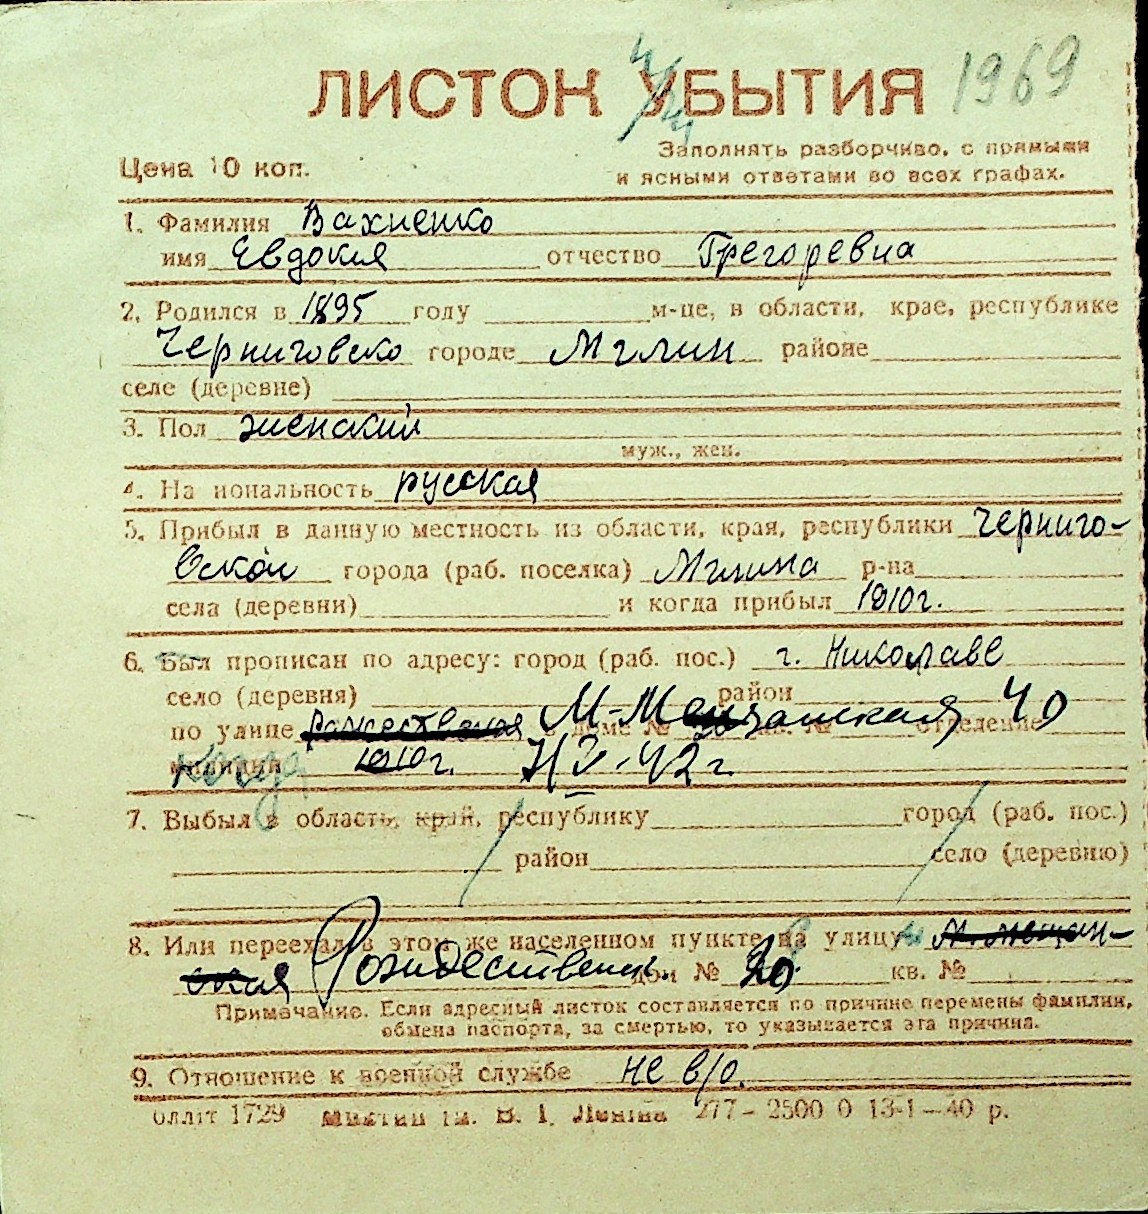 ЛИСТОК УБЫТИЯ 1969
Заполнять разборчиво, с прямыми
Цена 10 коп.
и ясными ответами во всех графах.
1. Фамилия Вахненко
имя Евдокия отчество Грегоревна
2. Родился в 1895 году м-це, в области, крае, республике
Черниговско городе Мглин районе
селе (деревне)
3. Пол женский
муж., жен.
4. На иональность русская
5. Прибыл в данную местность из области, края, республики Черниго-
вской города (раб. поселка) Мглина р-на
села (деревни) и когда прибыл 1910г.
6. Был прописан по адресу: город (раб. пос.) г. Николаве
село (деревня) район
по улице рожественская М-Мещанская 40 отделение
когда 1910г. 7/V-42г
7. Выбыл в область, край, республику город (раб. пос.)
район село (деревню)
8. Или переехал в этом же населенном пункте на улицу М. мещан-
ская Рождественск. дом № 20 кв. №
Примечание. Если адресный листок составляется по причине перемены фамилии,
обмена паспорта, за смертью, то указывается эта причина.
9. Отношение к военной службе не в/о.
оллiт 1729 iм. В. I. Ленiна 277-2500 0 13-1-40 р.